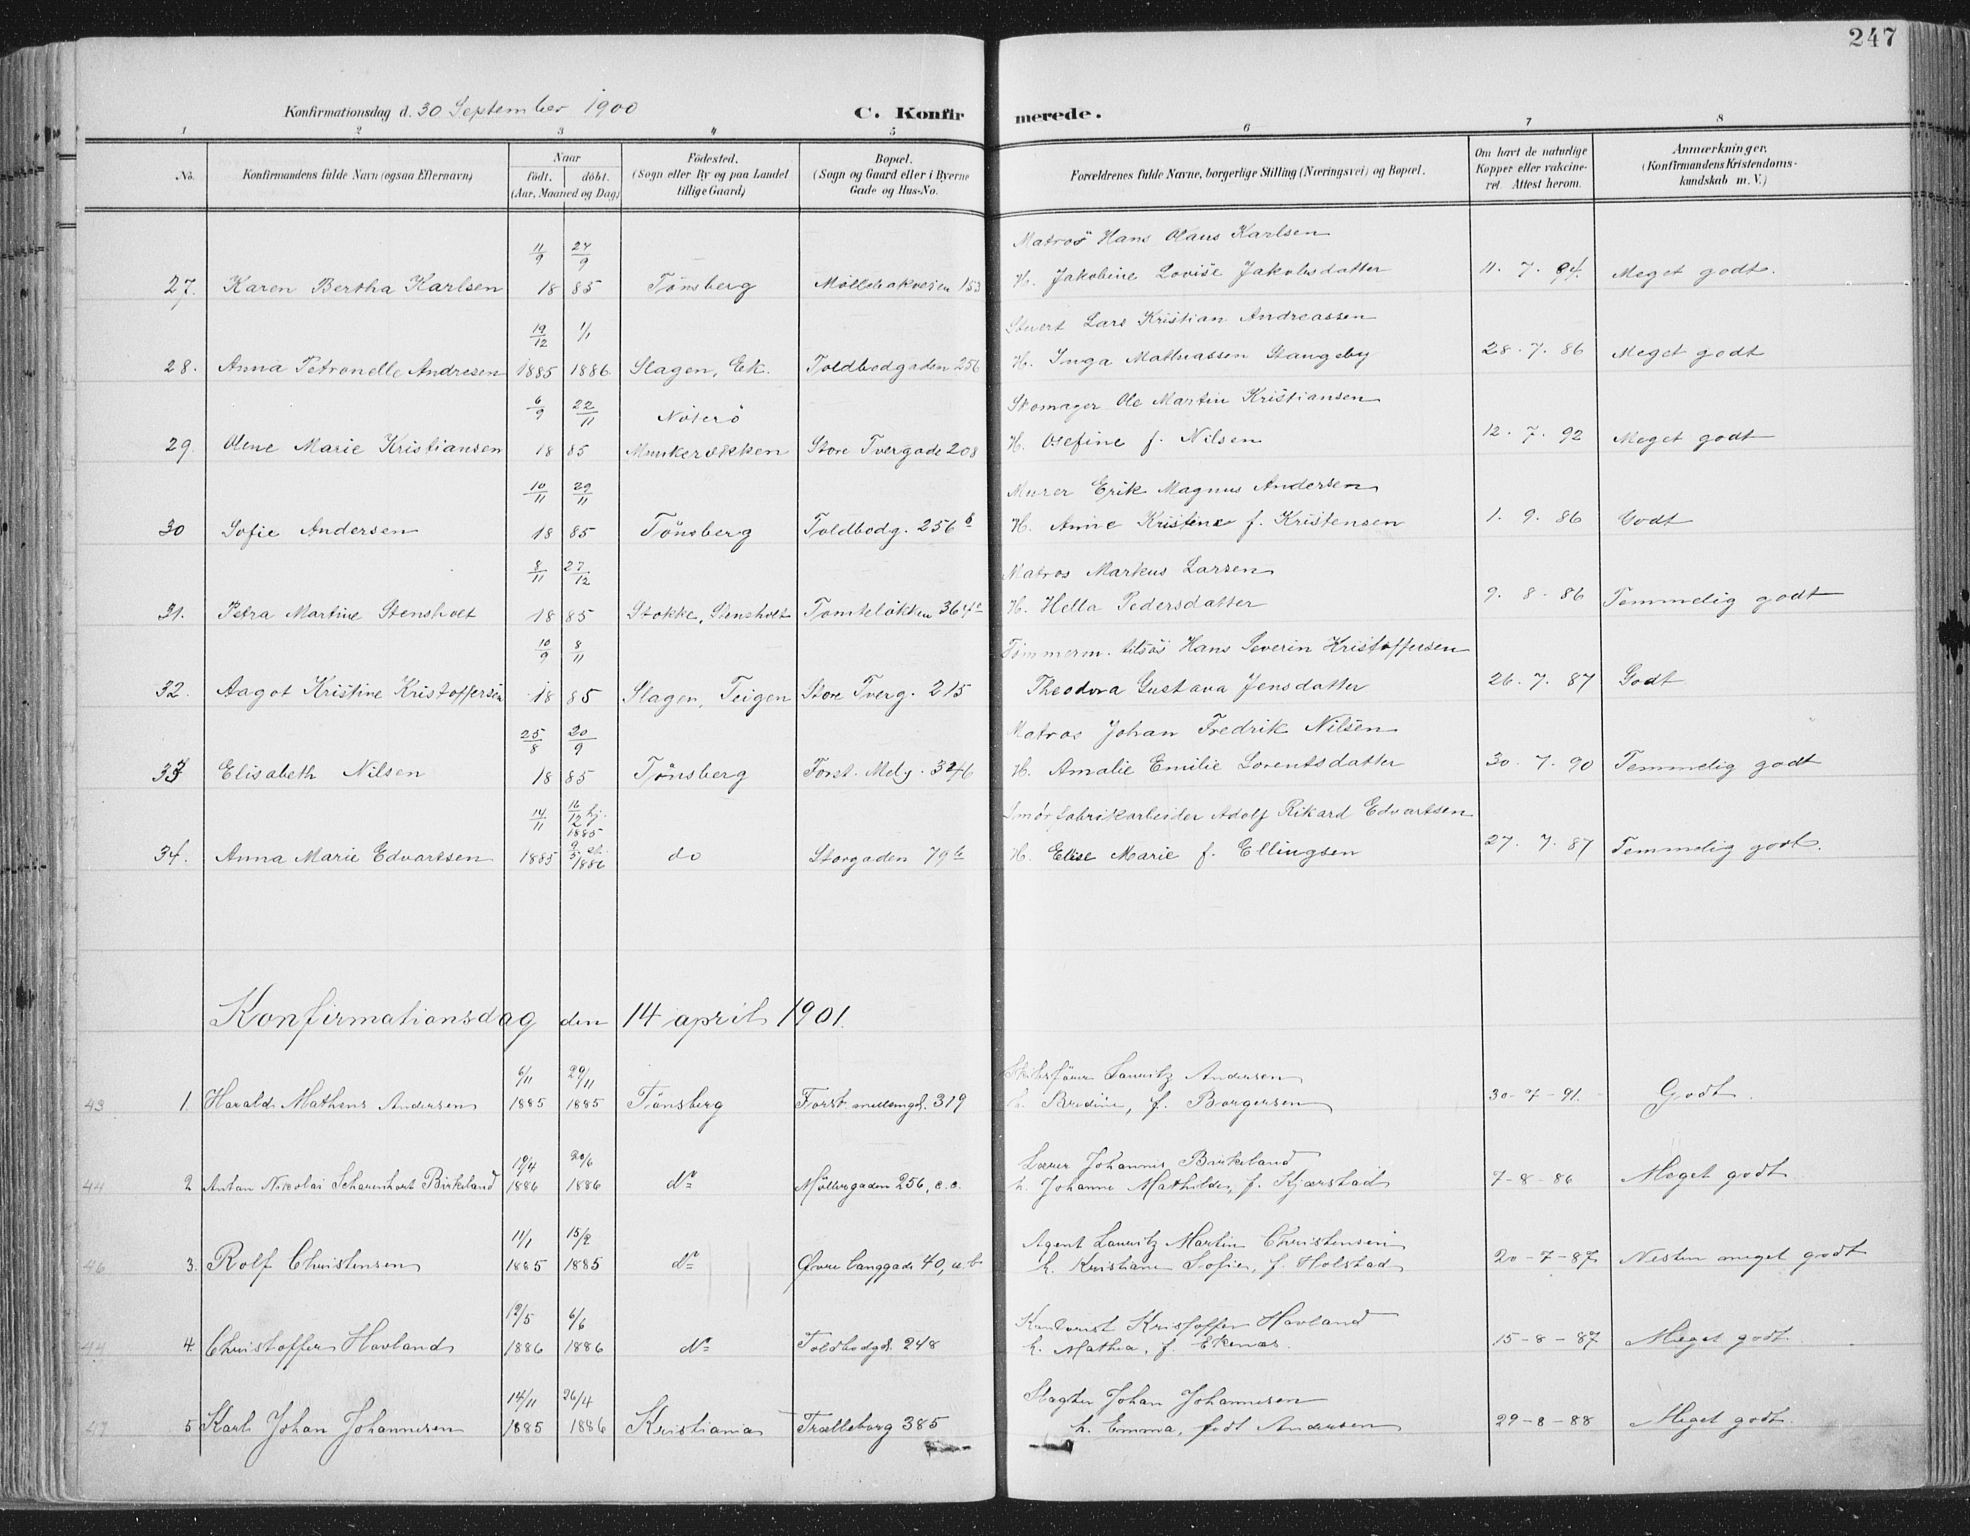 247
Konfirmationsdag d. 30 September 1900 C. Konfirmerede.
1 2 3 4 5 6 7 8
No. Konfirmandens fulde Navn (ogsaa Efternavn) Naar født. døbt. (Aar, Maaned og Dag) Fødested. (Sogn eller By og paa Landet tillige Gaard) Bopæl. (Sogn og Gaard eller i Byerne Gade og Hus-No. Forældrenes fulde Navne, borgerlige Stilling (Næringsvei) og Bopæl. Om havt de naturlige Kopper eller vakcineret Attest herom. Anmærkninger. (Konfirmandens Kristendomskundskab m. V.)
11/9 27/9 Matros Hans Olaus Karlsen
27. Karen Bertha Karlsen 18 85 Tønsberg 153 H. Jakobine Lovise Jakobsdatter 11. 7. 94. Meget godt.
19/12 1/1 Stuert Lars Kristian Andreassen
28. Anna Petronelle Andresen 1885 1886. Slagen, Ek. Toldbodgaden 256 H. Inga Mathiassen Stangeby 28. 7. 86 Meget godt
6/9 22/11 Nøterø Skomager Ole Martin Kristiansen
29. Olene Marie Kristiansen 18 85 Munkerekken Store Tvergade 208 H. Osefine f. Nilsen 12. 7. 92 Meget godt
10/11 29/11 Murer Erik Magnus Andersen
30 Sofie Andersen 18 85 Tønsberg Toldbodg. 256 b H. Anne Kristine f. Kristensen 1. 9. 86 Godt
8/11 27/12 Matros Markus Larsen
31. Petra Martine Stensholt 18 85 Stokke, Stensholt Tomteløkken 364 H. Hella Pedersdatter 9. 8. 86 Temmelig godt
10/9 8/11 Tømmerm. tilsøs Hans Severin Kristoffersen
32. Aagot Kristine Kristoffersen 18 85 Slagen, Teigen Store Tverg. 215 Theodora Gustava Jensdatter 26. 7. 87 Godt
25/8 20/9 Matros Johan Fredrik Nilsen
33 Elisabeth Nilsen 18 85 Tønsberg Forst. Melg. H. Amalie Emilie Lorentsdatter 30. 7. 90 Temmelig godt
14/11 16/12 hj. 1885 Smørfabrikarbeider Adolf Rikard Edvartsen
34. Anna Marie Edvartsen 1885 1886 do Storgaden 79 b H. Elise Marie f. Ellingsen 27. 7. 87 Temmelig godt.
Konfirmationsdag den 14 april 1901.
6/11 29/11 Skibsfører Lauritz Andersen
43 1. Harald Mathens Andersen 1885 1885 Tønsberg Forst. mellemgd. 319 h. Bredine, f. Borgersen 30-7-91. Godt.
19/4 20/6 Lærer Johannes Birkeland
44 2 Anton Nicolai Scharenhort Birkeland 1886 1886 do Møllergaden 256, c.c. h. Johanne Mathilde, f. Kjærstad 7-8-86 Meget godt
11/1 15/2 Agent Lauritz Martin Christensen
46 3. Rolf Christensen 1885 1885 do Øvre Langgade 40, a.b. h. Kristiane Sofie, f. Holstad 20-7-87 Nesten meget godt
12/5 6/6 Kontorist Kristoffer Havland
44 4. Christoffer Havland 1886 1886 do Toldbodgd. 248 h. Mathea, f. Ekenæs. 15-8-87 Meget godt.
14/11 26/4 Slagter Johan Johannesen
47 5 Karl Johan Johannesen 1885 1886 Kristiania Trælleborg 385 h. Emma, født Andersen 29-8-88 Meget godt.